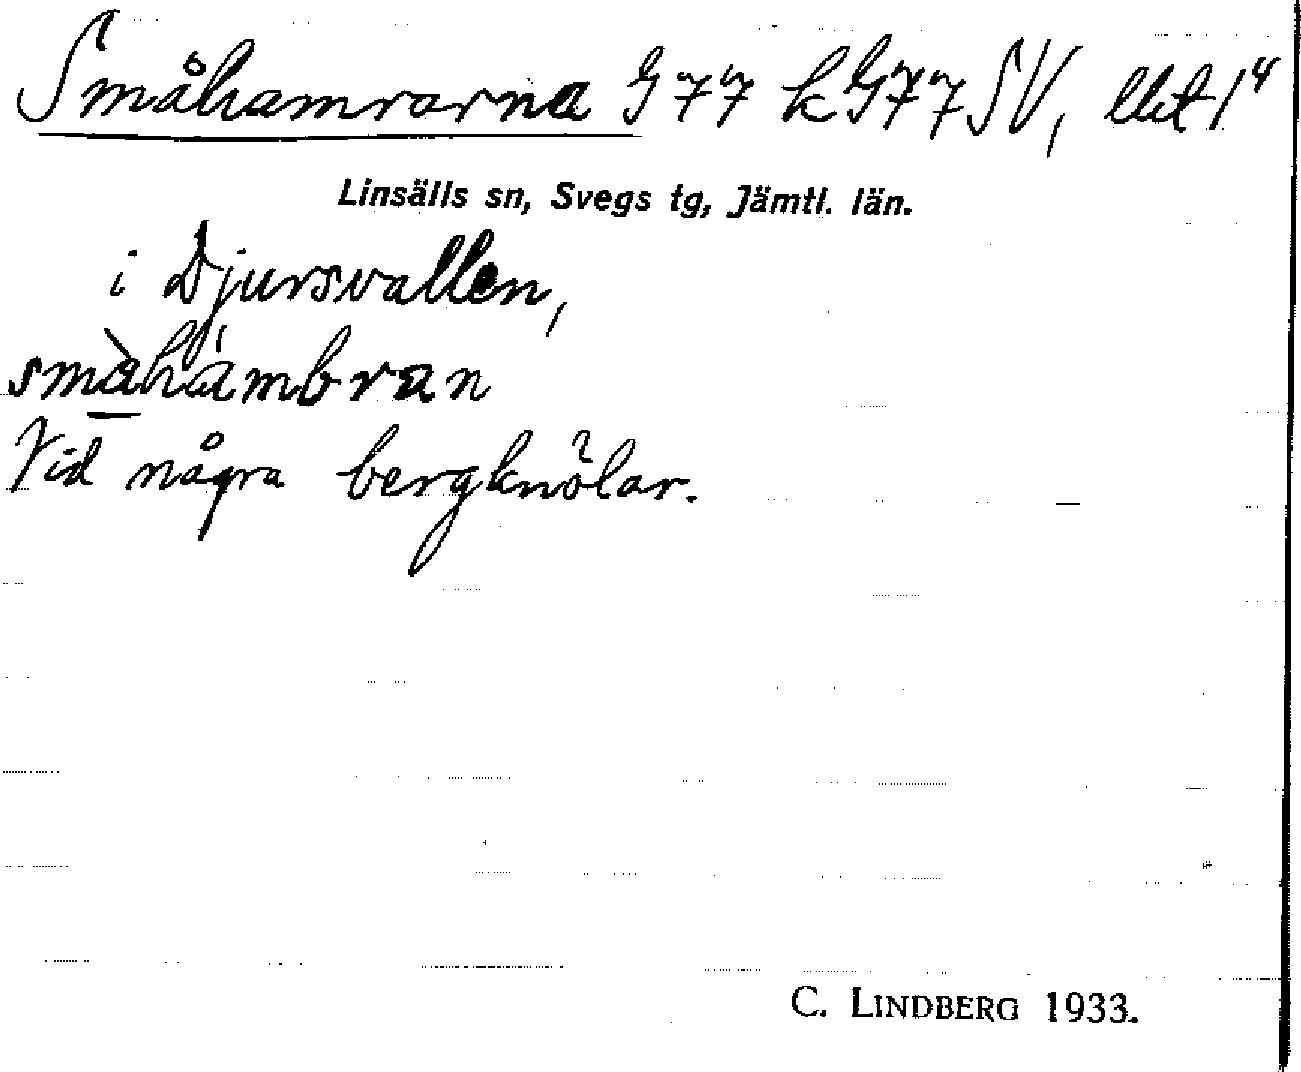 Småhamrarna G77 k G77 SV, llit 1⁴
Linsälls sn, Svegs tg, Jämtl. län.
i Djursvallen,
småhámbran
Vid några bergknölar.
C. LINDBERG 1933.